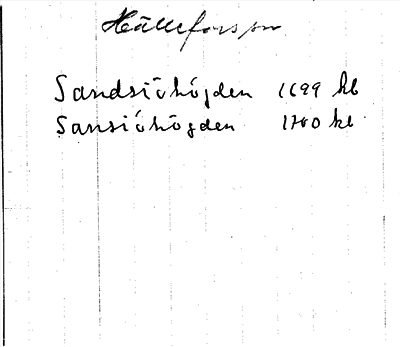 Hällefors sn
Sandsiöhögden 1699 kb
Sansiöhögden 1700 kb